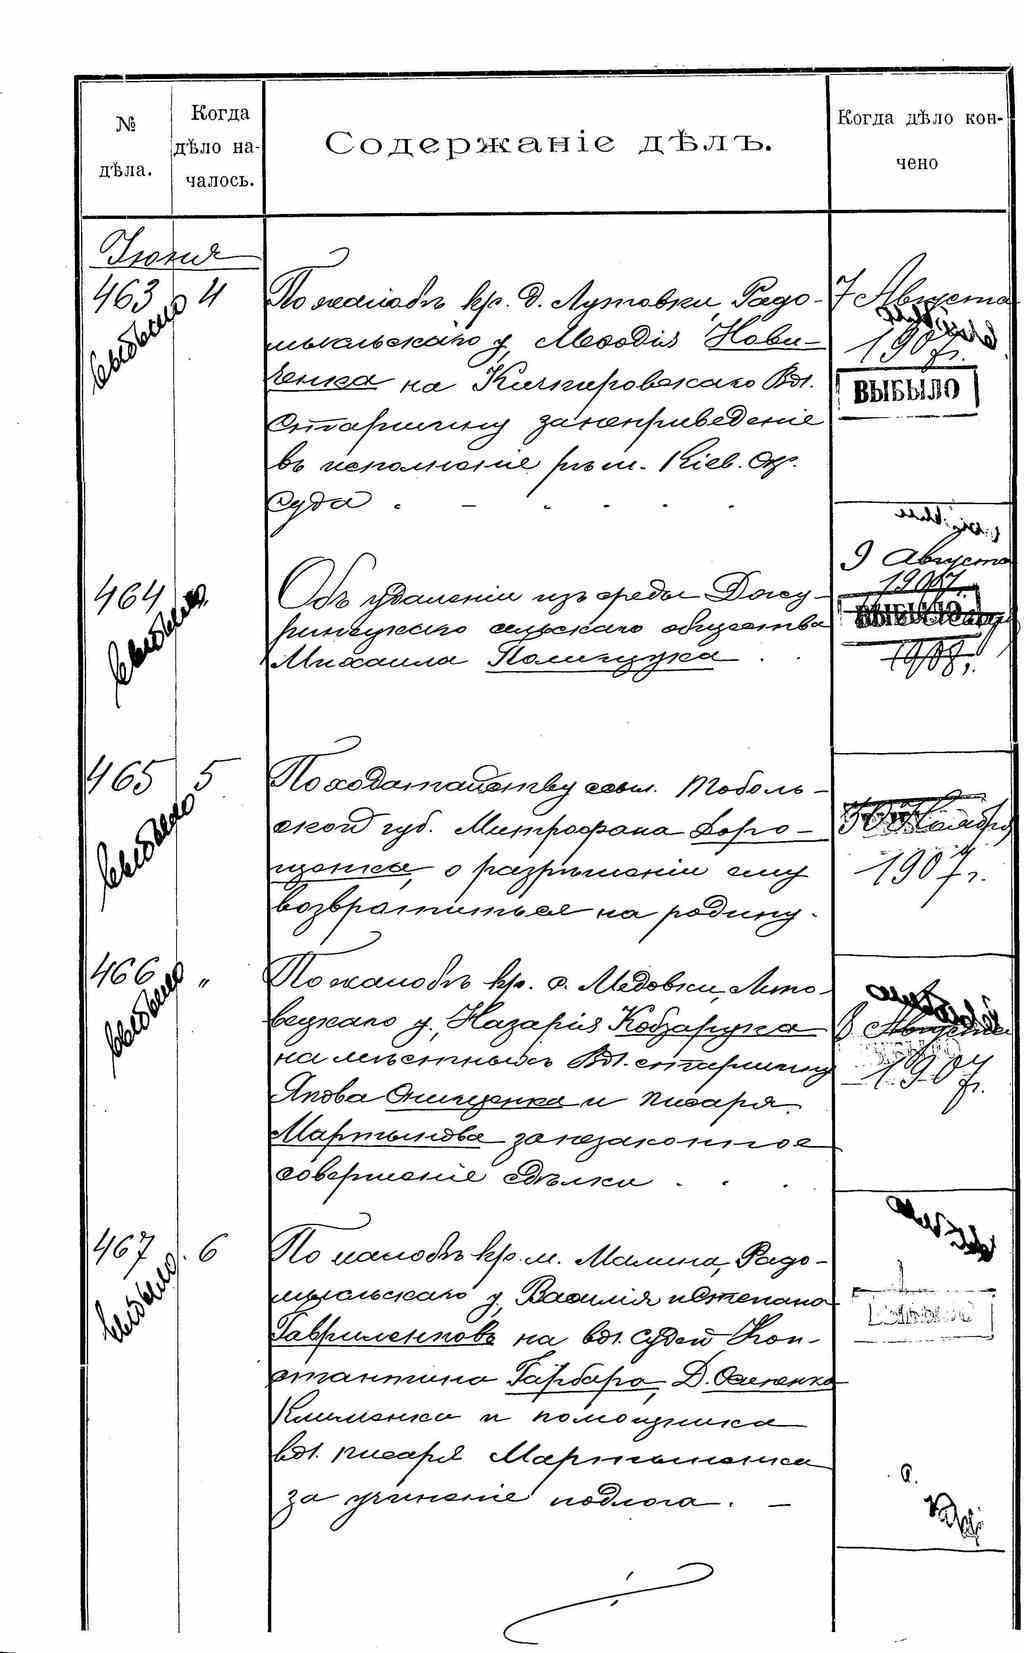 № дѣла.
Когда дѣло на-
чалось.
Содержаніе дѣлъ.
Когда дѣло кон-
чено
Іюня
463 4
выбыло
По жалобѣ кр. д. Лутовки, Радо-
мысльскаго у, Меѳодія Нови-
ченка на Кичкировскаго Вол.
Старшину за неприведеніе
въ исполненіе рѣш. Кіев. Окр.
Суда
7 Августа
1907 г.
ВЫБЫЛО
464 „
выбыло
Объ удаленіи изъ среды
сельскаго общества
Михаила Полищука
9 Августа
1907
ВЫБЫЛО
1908 г.
465 5
выбыло
По ходатайству ссыл. Тоболь-
ской губ. Митрофана Доро-
щенка, о разрѣшеніи ему
возвратиться на родину.
30 Ноября
1907 г.
466 „
выбыло
По жалобѣ кр. с. Медовки, Липо-
вецкаго у, Назарія Кобзарука
на мѣстныхъ Вол. старшину
Якова Онищенка и писаря
Мартынова за незаконное
совершеніе сдѣлки
8 Августа
1907 г.
467 6
выбыло
По жалобѣ кр. м. Малина, Радо-
мысльскаго у, Василія и Степана
Гавриленковъ на вол. судей Кон-
стантина Гарбара, Д.
Клименка и помощника
вол. писаря Мартыненка
за учиненіе подлога.